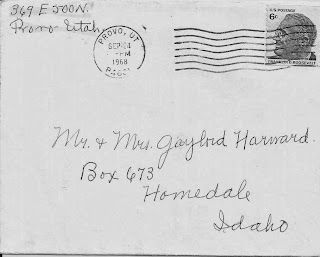 369 E 200 N.
Provo Utah
PROVO, UT
SEP 24
PM
1968
U.S. POSTAGE
6¢
FRANKLIN D. ROOSEVELT
Mr. & Mrs. Gaylord Harward.
Box 673
Homedale
Idaho